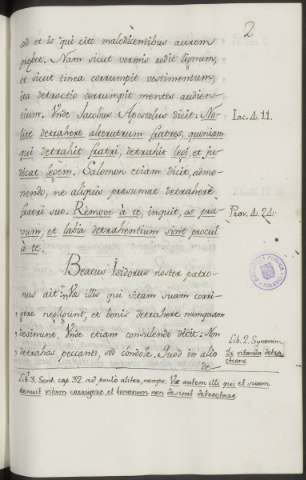 2
sed et is qui cito maledicentibus aurem
præbet. Nam sicut vermis edit lignum,
et sicut tinea corrumpit vestimentum,
ita detractio corrumpit mentes audien-
tium. Unde Jacobus Apostolus dicit: No-
lite detrahere alterutrum fratres, quoniam
qui detrahit fratri, detrahit legi, et ju-
dicat legem. Salomon etiam dicit, admo-
nendo, ne aliquis præsumat detrahere
fratri suo. Remove à te, inquit, os pra-
vum, et labia detrahentium sint procul
à te.
Iac. 4. 11.
Prov. 4. 24.
Beatus Isidorus noster patro-
nus ait: Væ illis qui vitam suam corri-
gere negligunt, et bonis detrahere numquam
desinunt. Unde etiam consulendo dicit: Non
detrahas peccanti, sed condole. Quod in alio
de
Lib. 2. Synonim.
de vitanda detra-
ctione
Lib. 3. Sent. cap. 32. sed paulo aliter, nempe. Væ autem illis qui et suam
vitam corrigere, et bonorum non desinunt detrectare